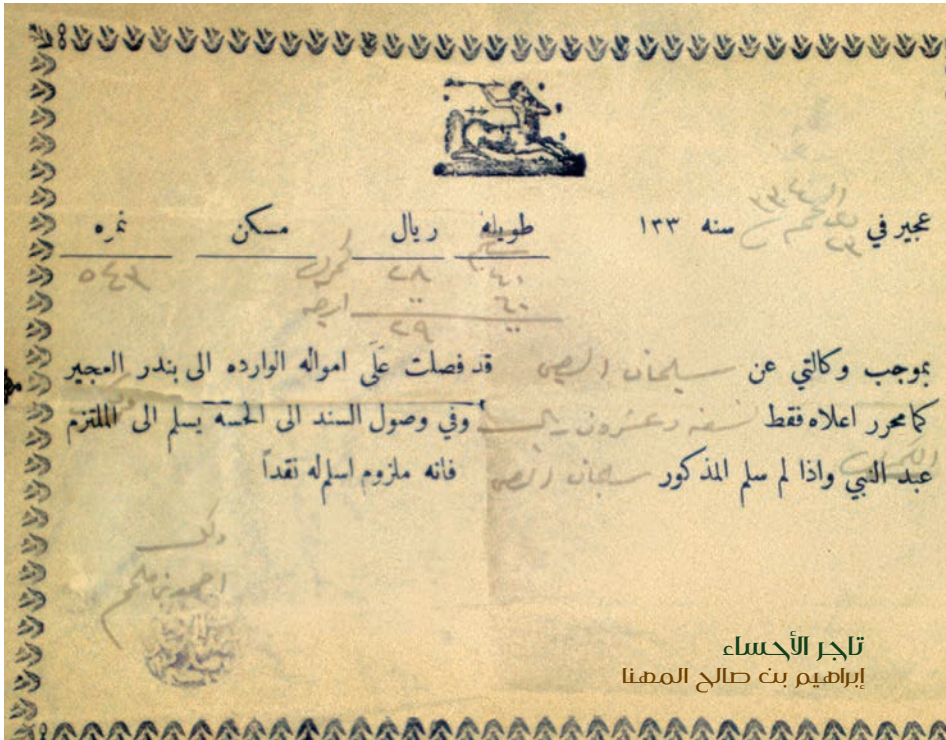 عجير في سنه ١٣٣ طويله ريال مسكن نمره
٤٠ ٢٨ ٥٤٣
٦٠
٢٩
بموجب وكالتي عن سليمان قد فصلت عَلَى امواله الوارده الى بندر العجير
كما محرر اعلاه فقط تسعه وعشرون ريال وفي وصول السند الى الحسه يسلم الى الملتزم
عبد النبي واذا لم سلم المذكور سليمان فانه ملزوم اسلمله نقداً
وكيل
تاجر الأحساء
إبراهيم بن صالح المهنا